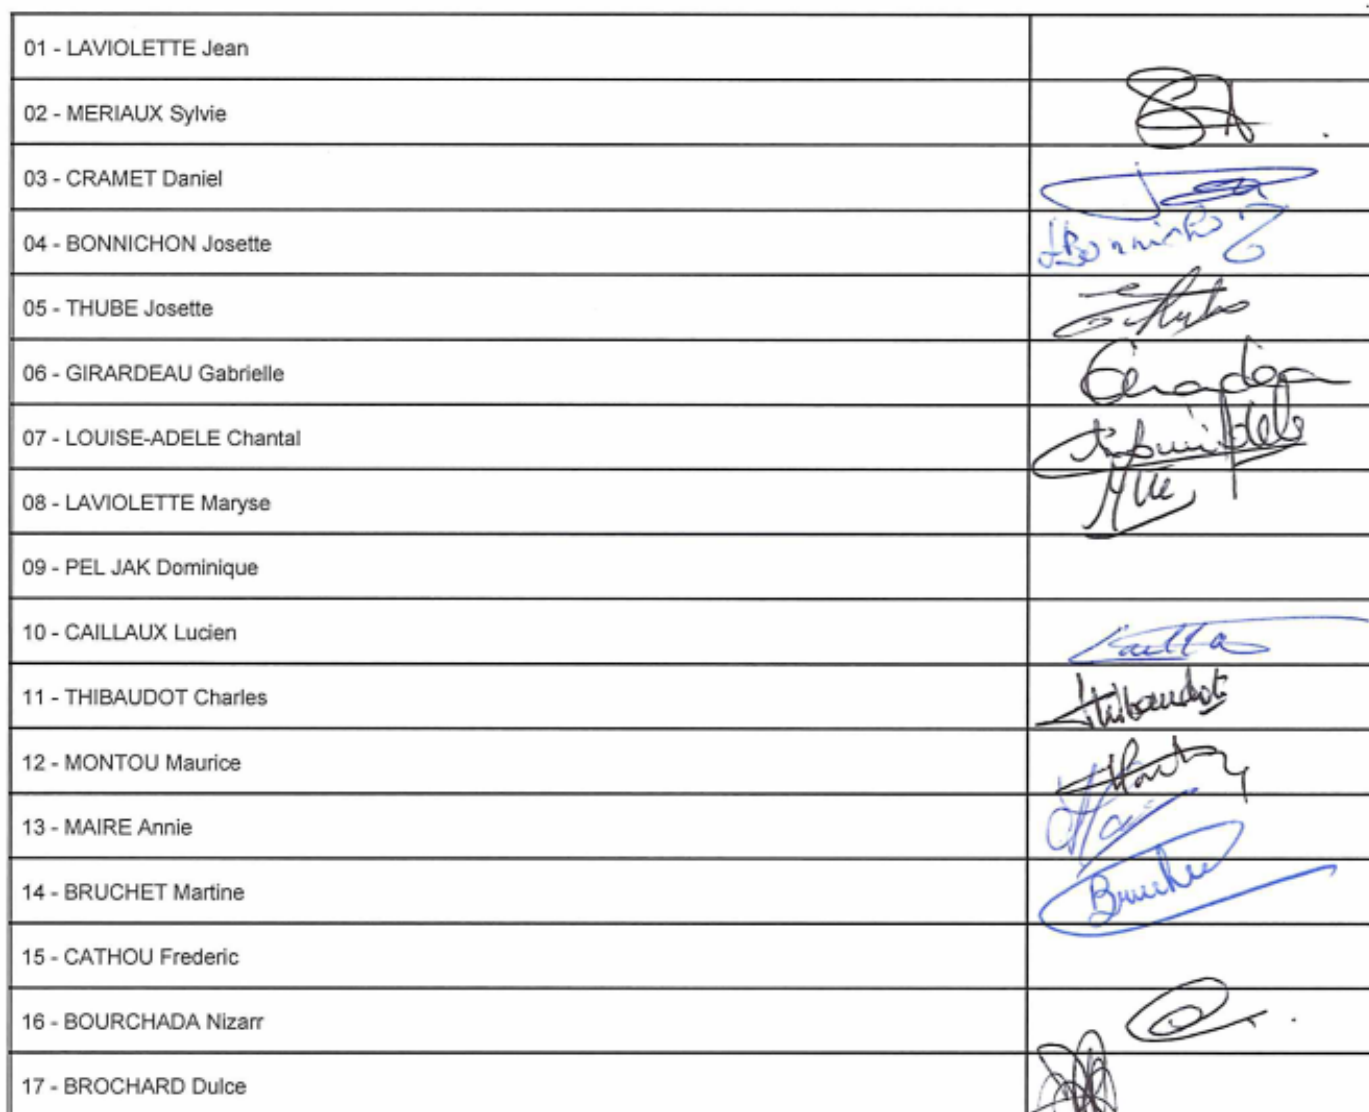 01 - LAVIOLETTE Jean
02 - MERIAUX Sylvie
03 - CRAMET Daniel
04 - BONNICHON Josette
05 - THUBE Josette
06 - GIRARDEAU Gabrielle
07 - LOUISE-ADELE Chantal
08 - LAVIOLETTE Maryse
09 - PEL JAK Dominique
10 - CAILLAUX Lucien
11 - THIBAUDOT Charles
Thibaudot
12 - MONTOU Maurice
13 - MAIRE Annie
14 - BRUCHET Martine
15 - CATHOU Frederic
16 - BOURCHADA Nizarr
17 - BROCHARD Dulce